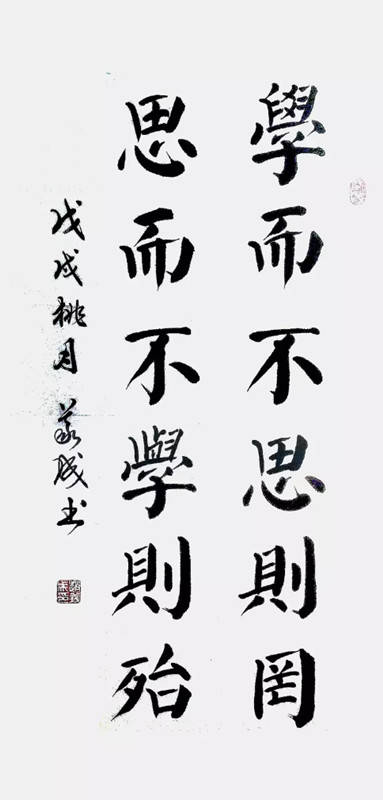 學而不思則罔
思而不學則殆
戊戌桃月 義成书